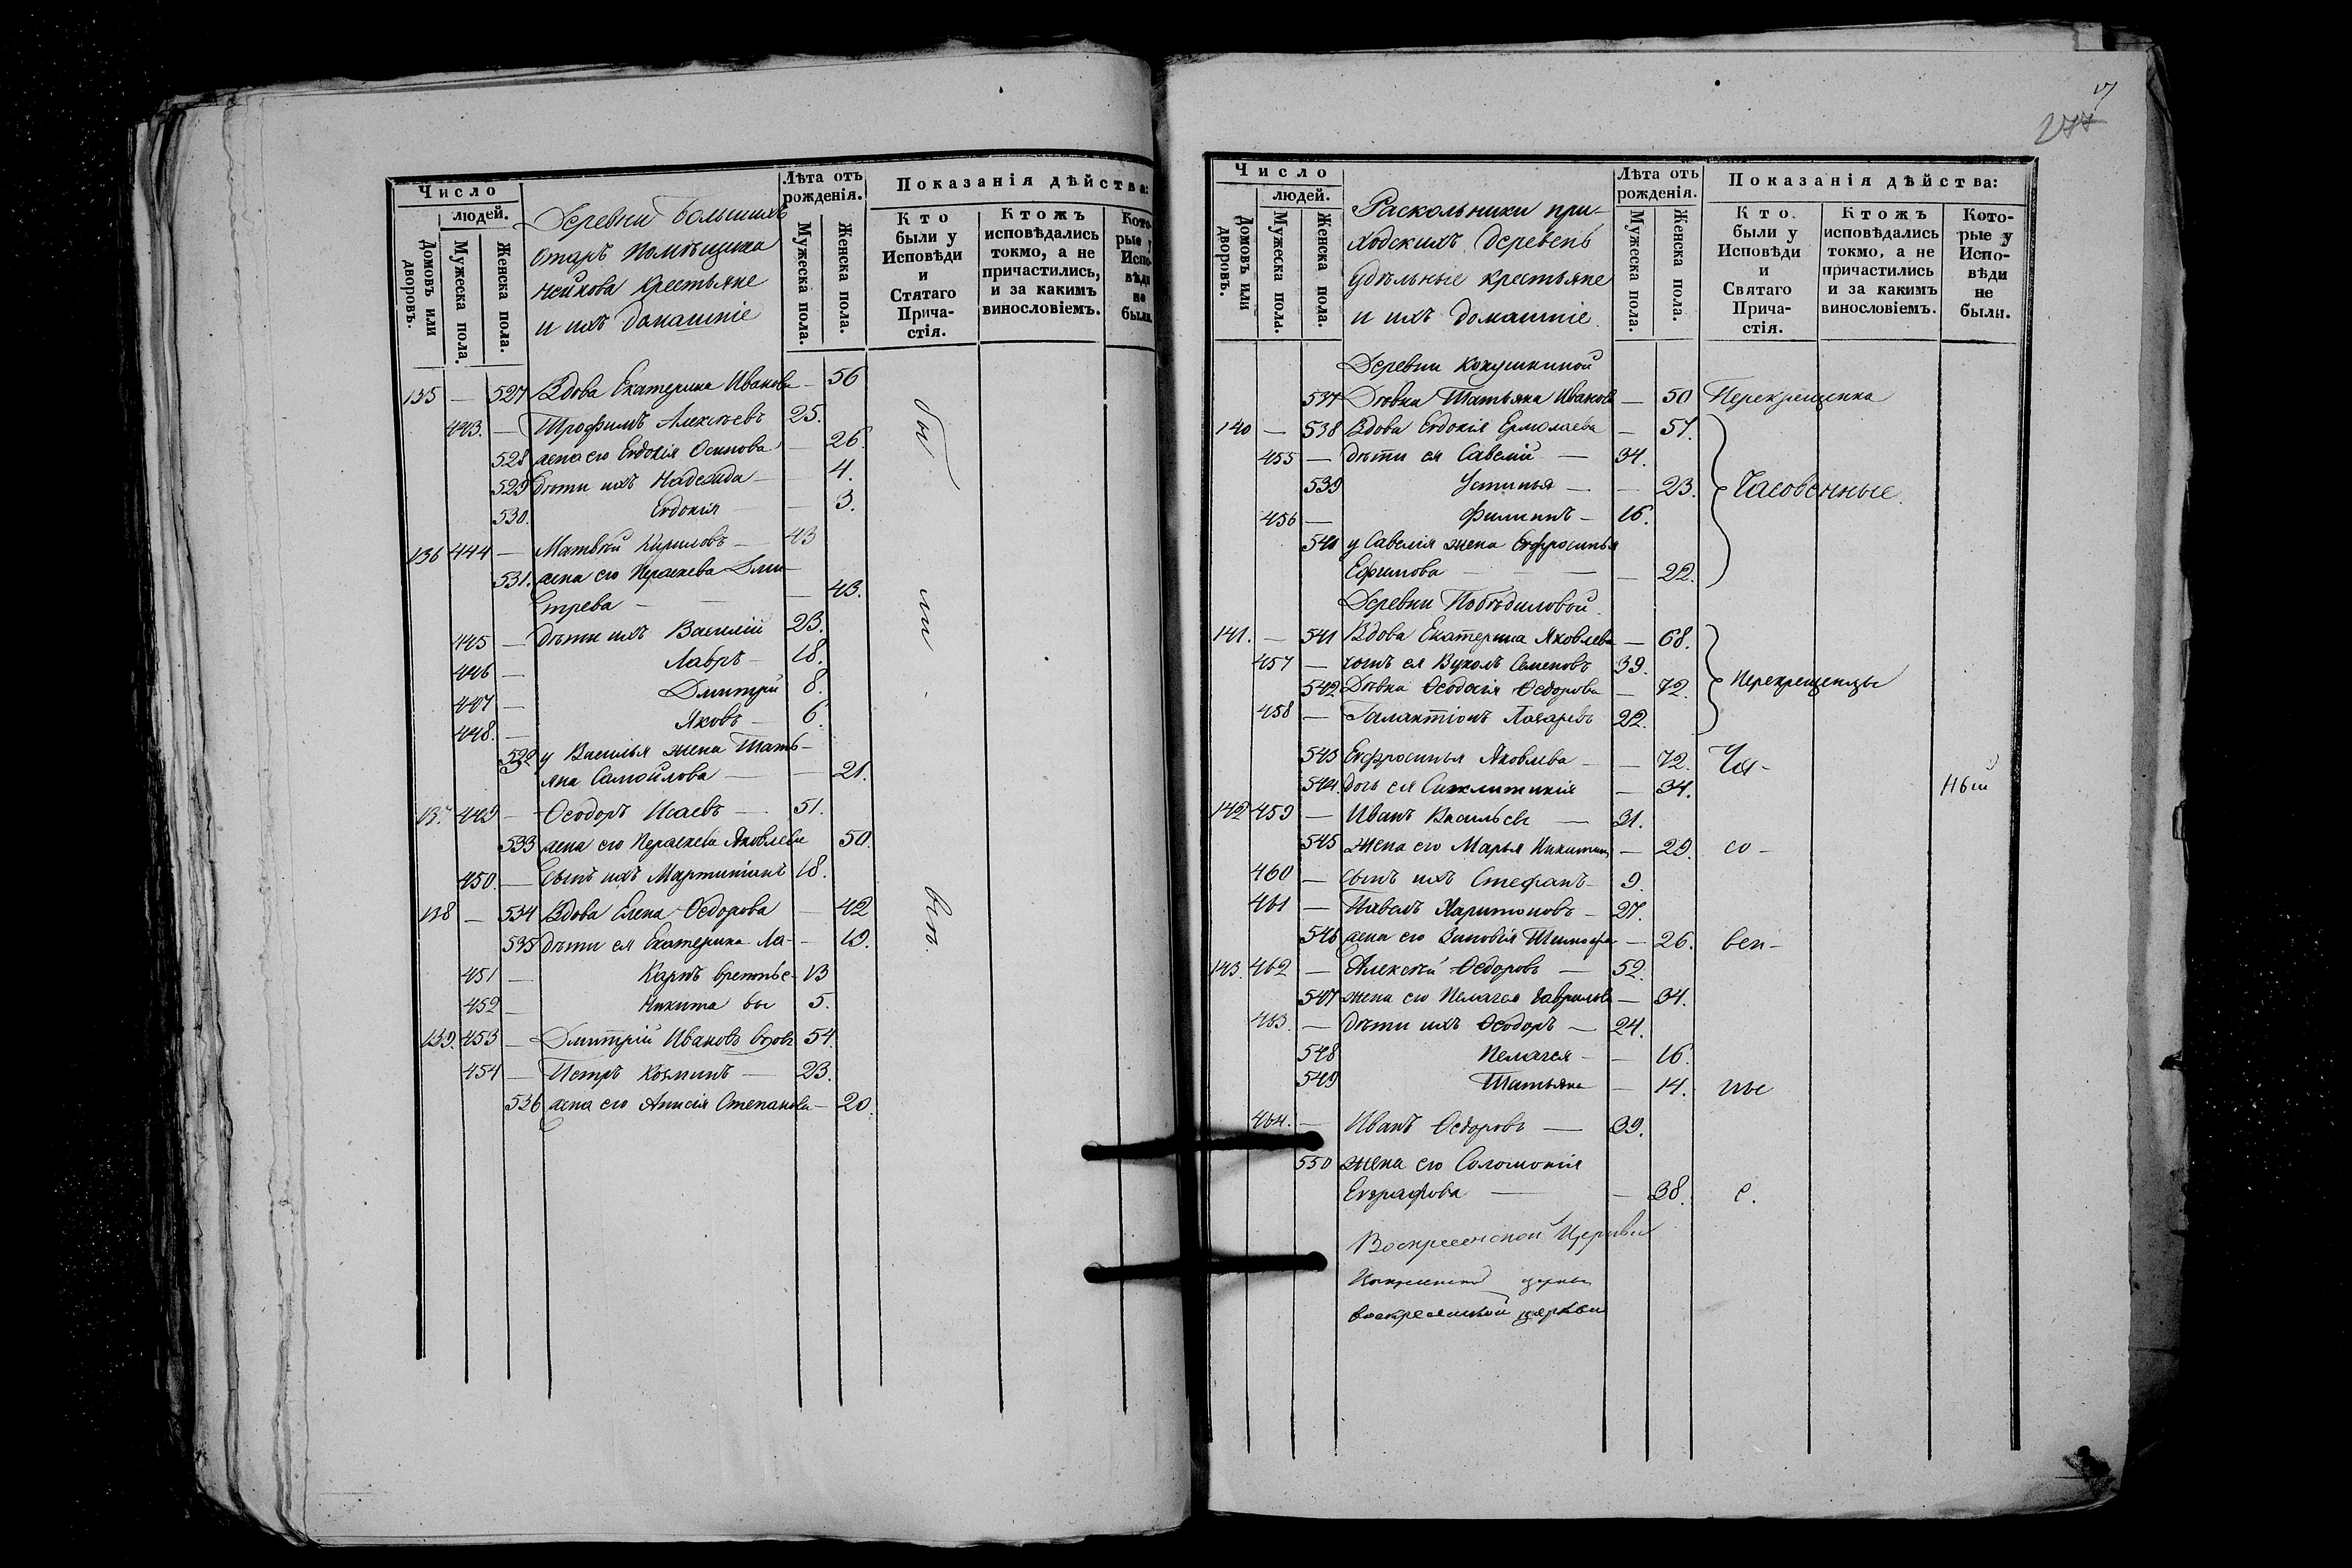 Число
людей.
Домовъ или дворовъ.
Мужеска пола.
Женска пола.
Деревни большихъ
Отаръ помѣщика
крестьяне
и ихъ домашніе
Лѣта отъ рожденія.
Мужеска пола.
Женска пола.
Показанія дѣйства:
Кто были у Исповѣди и Стятаго Прича-стія.
Ктожъ исповѣдались токмо, а не причастились, и за какимъ винословіемъ.
Кото-рые у Испо-вѣди не были.
135 — 527 Вдова Екатерина Иванова — 56
443. — Трофимъ Алексѣевъ 25.
528 жена его Евдокія Осипова — 26
529 дѣти ихъ Надежда — 4.
530. Евдокія — 3.
136 444 — Матвѣй Кириловъ — 43
531. жена его Параскева Дми-
трева — 43.
445 — дѣти ихъ Василій 23.
446 — Лавръ — 18.
447 — Дмитрій 8.
448. — Яковъ — 6.
532 у Василья жена Тать-
яна Самойлова — 21.
137 449 — Ѳеодоръ Исаевъ — 51.
533 жена его Параскева Яковлева 50.
450. — сынъ ихъ Мартиніанъ 18.
138 — 534 Вдова Елена Ѳедорова — 42
535 дѣти ея Екатерина Ла- — 19.
451 — Карпъ врентье- 13
452 — Никита вы 5.
139. 453 — Дмитрій Ивановъ вдовъ 54.
454 — Петръ Козминъ — 23.
536 жена его Анисія Степанова — 20.
бы
ли
вси
277
Число
людей.
Домовъ или дворовъ.
Мужеска пола.
Женска пола.
Раскольники при-
ходскихъ деревень
Удѣльные крестьяне
и ихъ домашніе.
Лѣта отъ рожденія.
Мужеска пола.
Женска пола.
Показанія дѣйства:
Кто были у Исповѣди и Святаго Прича-стія.
Ктожъ исповѣдались токмо, а не причастились и за какимъ винословіемъ.
Кото-рые у Испо-вѣди не были.
Деревни Кокушкиной
537 Дѣвка Татьяна Иванова — 50 Перекрещенка
140 — 538 Вдова Евдокія Ермолаева — 57.
455 — дѣти ея Савелій — 34.
539 Устинья — — 23. Часовенные.
456 — Филиппъ — 16.
540 у Савелія жена Евфросинья
Ефимова — — 22.
Деревни Побѣдиловой.
141. — 541 Вдова Екатерина Яковлева — 68.
457 — сынъ ея Вуколъ Семеновъ 39.
542 Дѣвка Ѳеодосія Ѳедорова — 72. Перекрещенцы
458 — Галактіонъ Лазаревъ 22.
543 Евфросинья Яковлева — — 72. Ча-
544. дочь ея Синклитикія — 34. ный
142 459 — Иванъ Васильевъ — 31.
545 жена его Марья Никитина — 29. со-
460 — сынъ ихъ Стефанъ — 9.
461 — Павелъ Харитоновъ — 27.
546 жена его Зиновія Тимофѣева — 26. вен-
143. 462 — Алексѣй Ѳедоровъ — 52.
547 жена его Пелагея Гаврилова — 34.
463. — дѣти ихъ Ѳеодоръ — 24.
548 Пелагея — — 16.
549 Татьяна — 14. ны
464. — Иванъ Ѳедоровъ — 39.
550 жена его Соломонія
Евграфова — — 38. е.
Воскресенской Церкви
церкви
воскресенской церкви